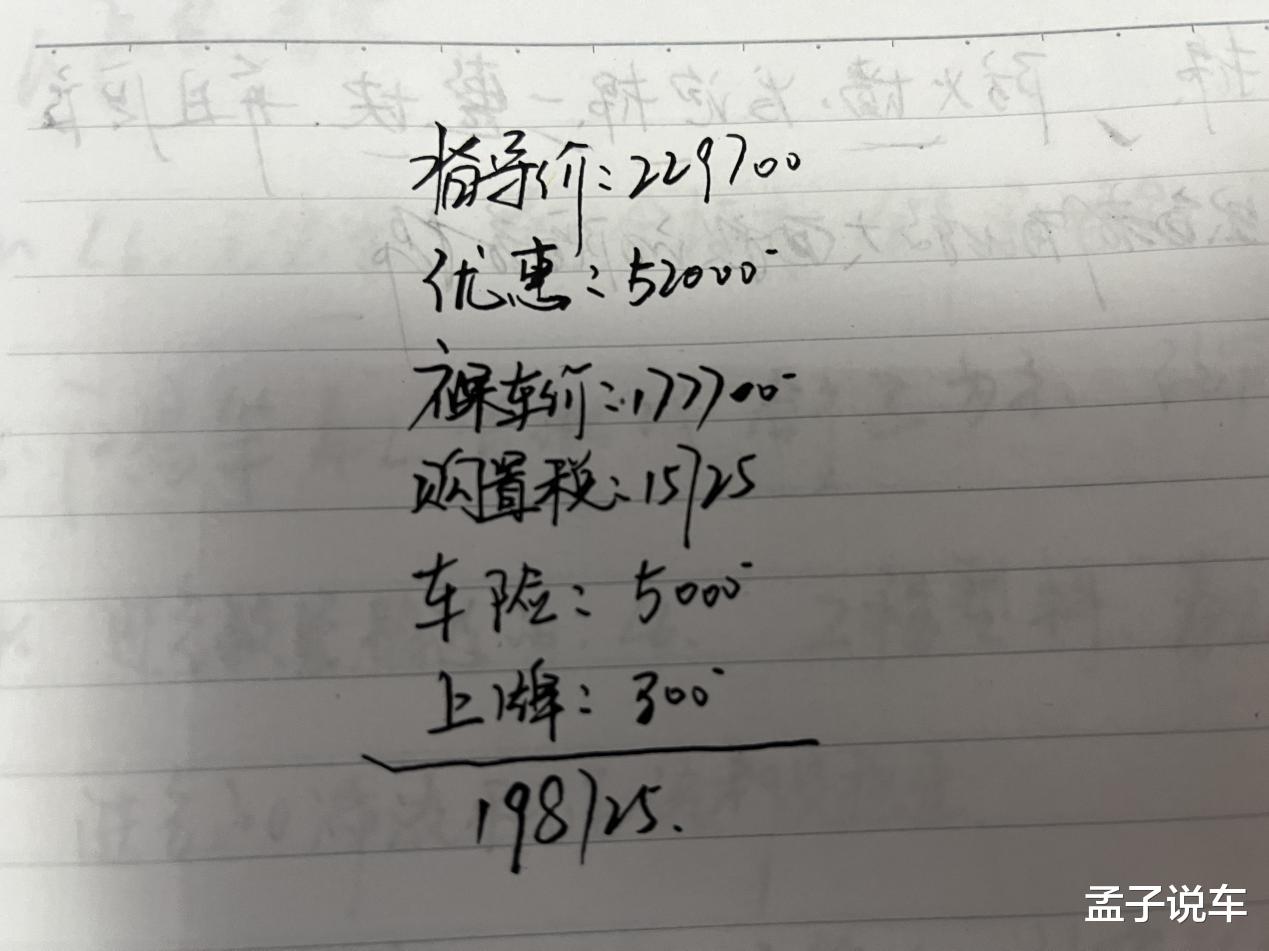 指导价:229700
优惠:52000
裸车价:177700
购置税:15725
车险:5000
上牌:300
198725.
孟子说车